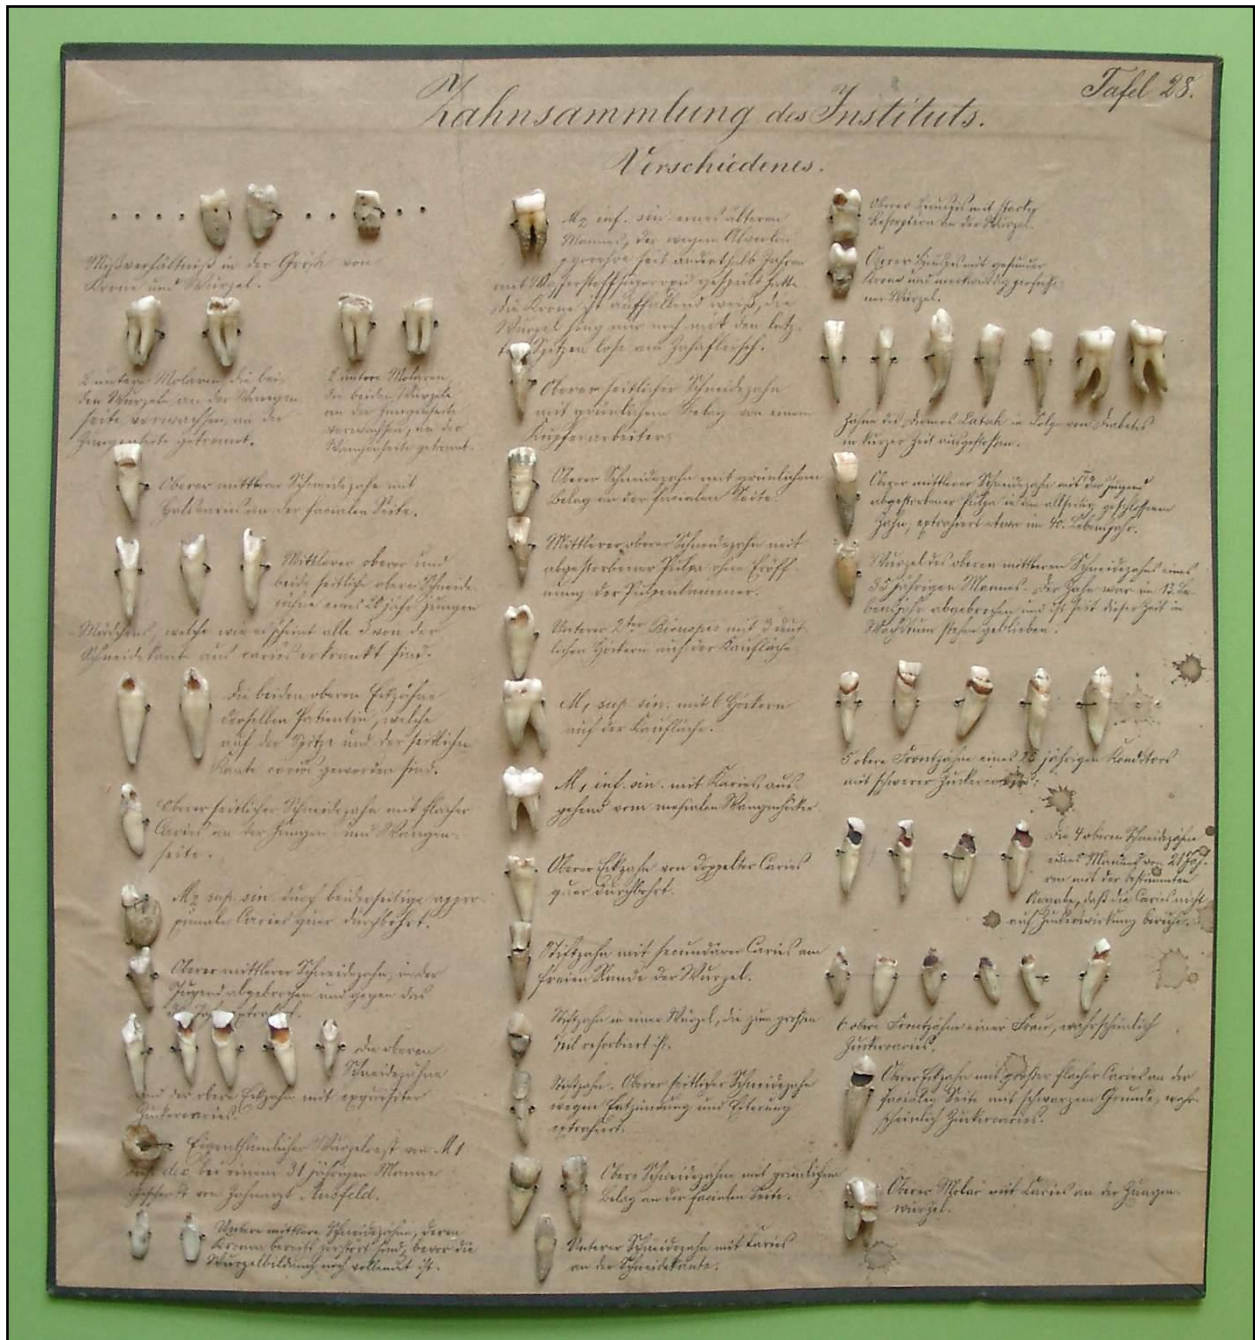 Zahnsammlung des Instituts.
Tafel 28.
Verschiedenes.
Mißverhältniß in der Größe von
Krone und Wurzel.
2 untere Molaren, die bei-
den Wurzeln an der Wangen-
seite verwachsen, an der
Zungenseite getrennt.
2 untere Molaren,
die beiden Wurzeln
an der Zungenseite
verwachsen, an der
Wangenseite getrennt.
Oberer mittlerer Schneidezahn mit
an der facialen Seite.
Mittlerer oberer und
beide seitliche obere Schneide-
zähne eines jungen
Mädchens, welche wie es scheint alle 3 von der
Schneidekante aus cariös erkrankt sind.
Die beiden oberen Eckzähne
derselben Patientin, welche
auf der Spitze und der seitlichen
Kante cariös geworden sind.
Oberer seitlicher Schneidezahn mit flacher
Caries an der Zungen- und Wangen-
seite.
M2 sup. sin. durch beiderseitige appro-
ximale Caries quer durchbohrt.
Oberer mittlerer Schneidezahn, in der
Jugend abgebrochen und gegen das
Die oberen
Schneidezähne
und der obere Eckzahn mit exquisiter
Zuckercaries.
Eigenthümlicher Wurzelrest von M1
bei einem 31 jährigen Manne
von Zahnarzt Ansfeld.
Untere mittlere Schneidezähne, deren
Kronen bereits zerstört sind, bevor die
Wurzelbildung noch vollendet ist.
M2 inf. sin. eines älteren
Mannes, der wegen Alveolar-
pyorrhoe seit anderthalb Jahren
mit Wasserstoffsuperoxid gespült hatte
die Krone ist auffallend weiß, die
Wurzel hing nur noch mit den letz-
ten Spitzen lose am Zahnfleisch.
Oberer seitlicher Schneidezahn
mit grünlichem Belag von einem
Kupferarbeiter.
Oberer Schneidezahn mit grünlichem
Belag an der facialen Seite.
Mittlerer oberer Schneidezahn mit
abgestorbener Pulpa ohne Eröff-
nung der Pulpenkammer.
Unterer 2ter Bicuspis mit 3 deut-
lichen Höckern auf der Kaufläche.
M1 sup. sin. mit 6 Höckern
auf der Kaufläche.
M1 inf. sin. mit Karies, aus-
gehend vom mesialen Wangenhöcker.
Oberer Eckzahn von doppelter Caries
quer durchbohrt.
Stiftzahn mit secundärer Caries am
freien Rande der Wurzel.
Stiftzahn in einer Wurzel, die zum großen
Teil resorbiert ist.
Stiftzahn. Oberer seitlicher Schneidezahn
wegen Entzündung und Eiterung
extrahiert.
Obere Schneidezähne mit grünlichem
Belag an der facialen Seite.
Unterer Schneidezahn mit Caries
an der Schneidekante.
Oberer Bicuspis mit starker
Resorption an der Wurzel.
Oberer Bicuspis mit gesunder
Krone und merkwürdig
ner Wurzel.
Zähne des Herrn in Folge von Diabetes
in kurzer Zeit ausgefallen.
Oberer mittlerer Schneidezahn mit in der Jugend
abgestorbener Pulpa in dem allseitig geschlossenen
Zahn, extrahiert etwa im 40. Lebensjahr.
Wurzel des oberen mittleren Schneidezahnes eines
35 jährigen Mannes. Der Zahn war im 13. Le-
bensjahr abgebrochen und ist seit dieser Zeit im
Wachstum stehen geblieben.
5 obere Frontzähne eines jährigen Konditors
mit schwerer Zuckercaries.
Die 4 oberen Schneidezähne
eines Mannes von 21 Jah-
ren mit der bestimmten
Angabe, daß die Caries nicht
auf Zuckerwirkung beruhe.
6 obere Frontzähne einer Frau, wahrscheinlich
Zuckercaries.
Oberer Eckzahn mit großer flacher Caries an der
facialen Seite mit schwarzem Grunde, wahr-
scheinlich Zuckercaries.
Oberer Molar mit Caries an der Zungen-
wurzel.